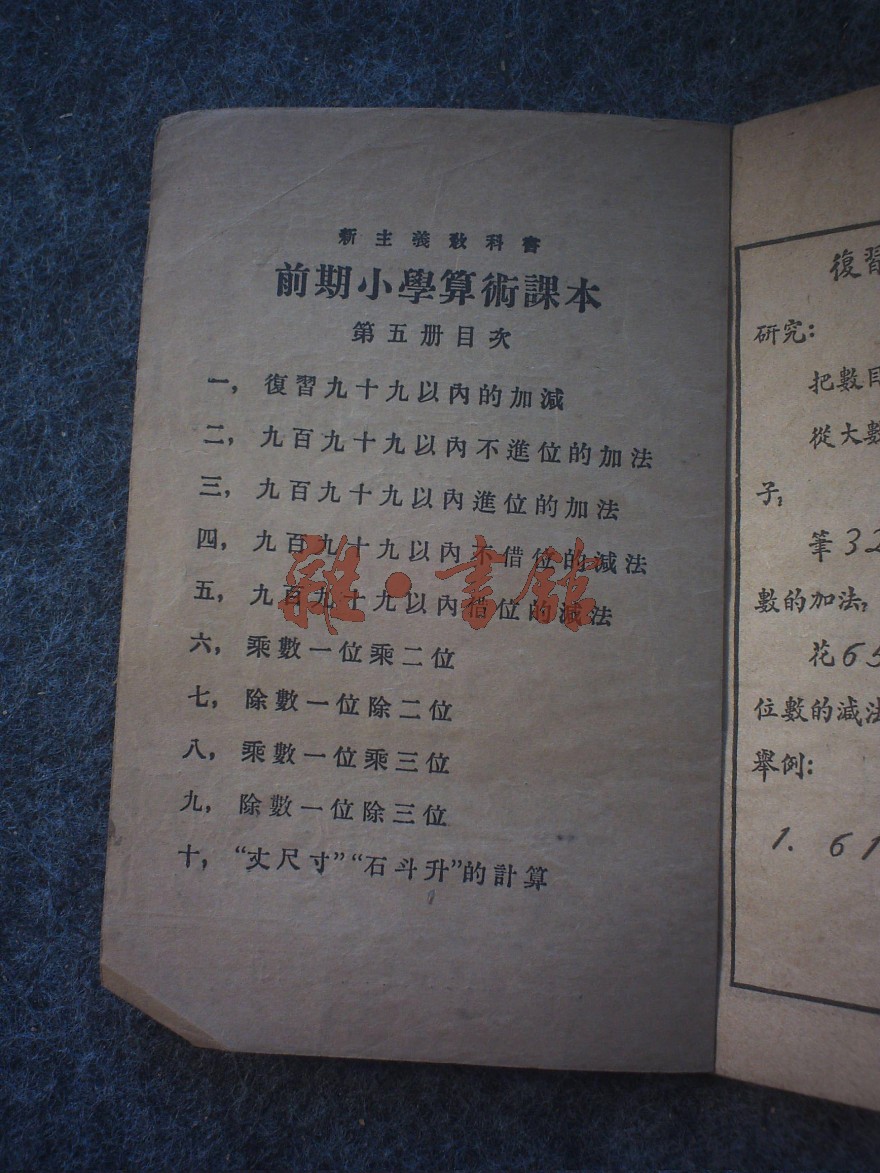 新主義教科書
前期小學算術課本
第五册目次
一，復習九十九以內的加減
二，九百九十九以內不進位的加法
三，九百九十九以內進位的加法
四，九百九十九以內不借位的減法
五，九百九十九以內借位的減法
六，乘數一位乘二位
七，除數一位除二位
八，乘數一位乘三位
九，除數一位除三位
十，“丈尺寸”“石斗升”的計算
雜·書館
復習
研究：
把數目
從大數
子；
筆32
數的加法；
花65
位數的減法
舉例：
1. 61